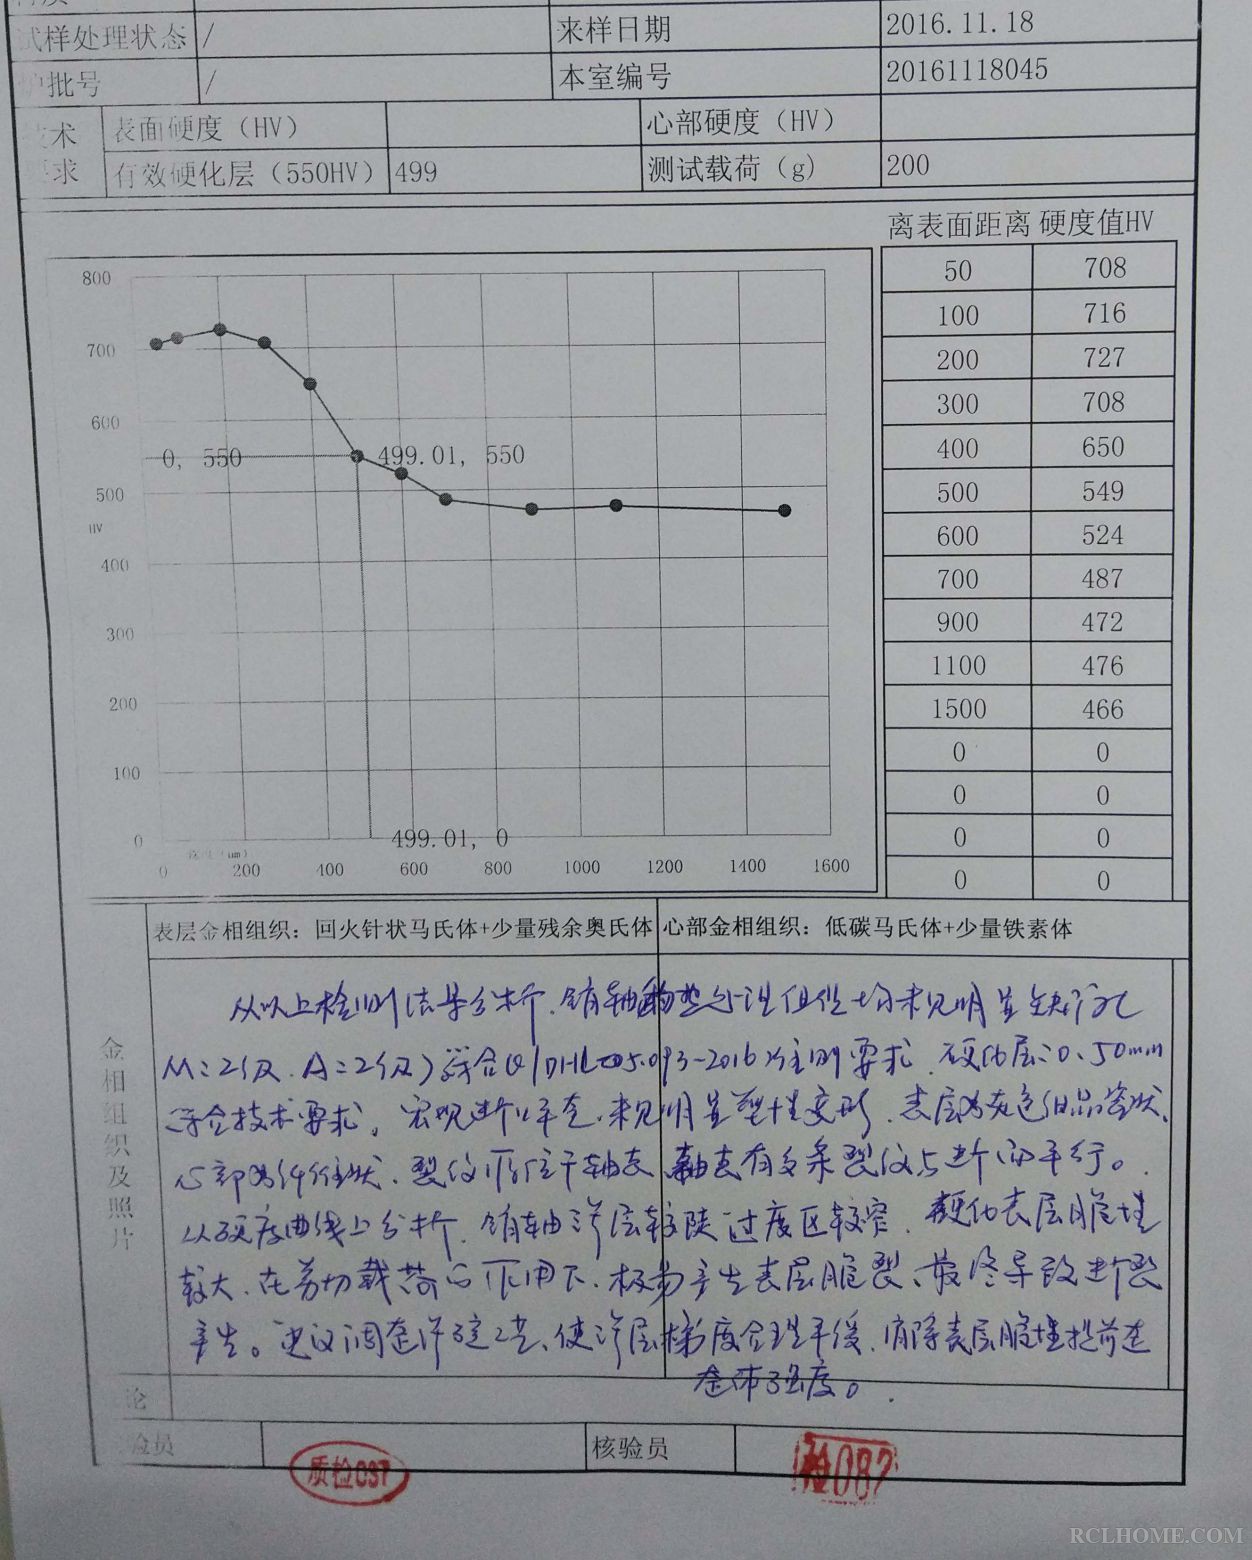 试样处理状态 / 来样日期 2016.11.18
炉批号 / 本室编号 20161118045
技术 表面硬度（HV） 心部硬度（HV）
要求 有效硬化层（550HV） 499 测试载荷（g） 200
离表面距离 硬度值HV
50 708
100 716
200 727
300 708
400 650
500 549
600 524
700 487
900 472
1100 476
1500 466
0 0
0 0
0 0
0 0
800
700
600
0, 550 499.01, 550
500
HV
400
300
200
100
0 499.01, 0
深度（um）
0 200 400 600 800 1000 1200 1400 1600
表层金相组织：回火针状马氏体+少量残余奥氏体 心部金相组织：低碳马氏体+少量铁素体
金相组织及照片
从以上检测结果分析，销轴的热处理组织均未见明显缺陷（
M：2级、A：2级）符合Q/ 2016 要求，硬化层：0.50mm
符合技术要求。宏观 未见明显塑性变形，表层为灰色细晶瓷状，
心部为纤维状，裂纹 位于轴表，轴表有多条裂纹与 平行。
从硬度曲线上分析，销轴渗层较陡过度区较窄，硬化表层脆性
较大，在剪切载荷的作用下，极易产生表层脆裂，最终导致断裂
产生。建议调整渗碳工艺，使渗层梯度合理平缓，消除表层脆性提高
整体强度。
论
检验员 质检037 核验员 检087
RCLHOME.COM